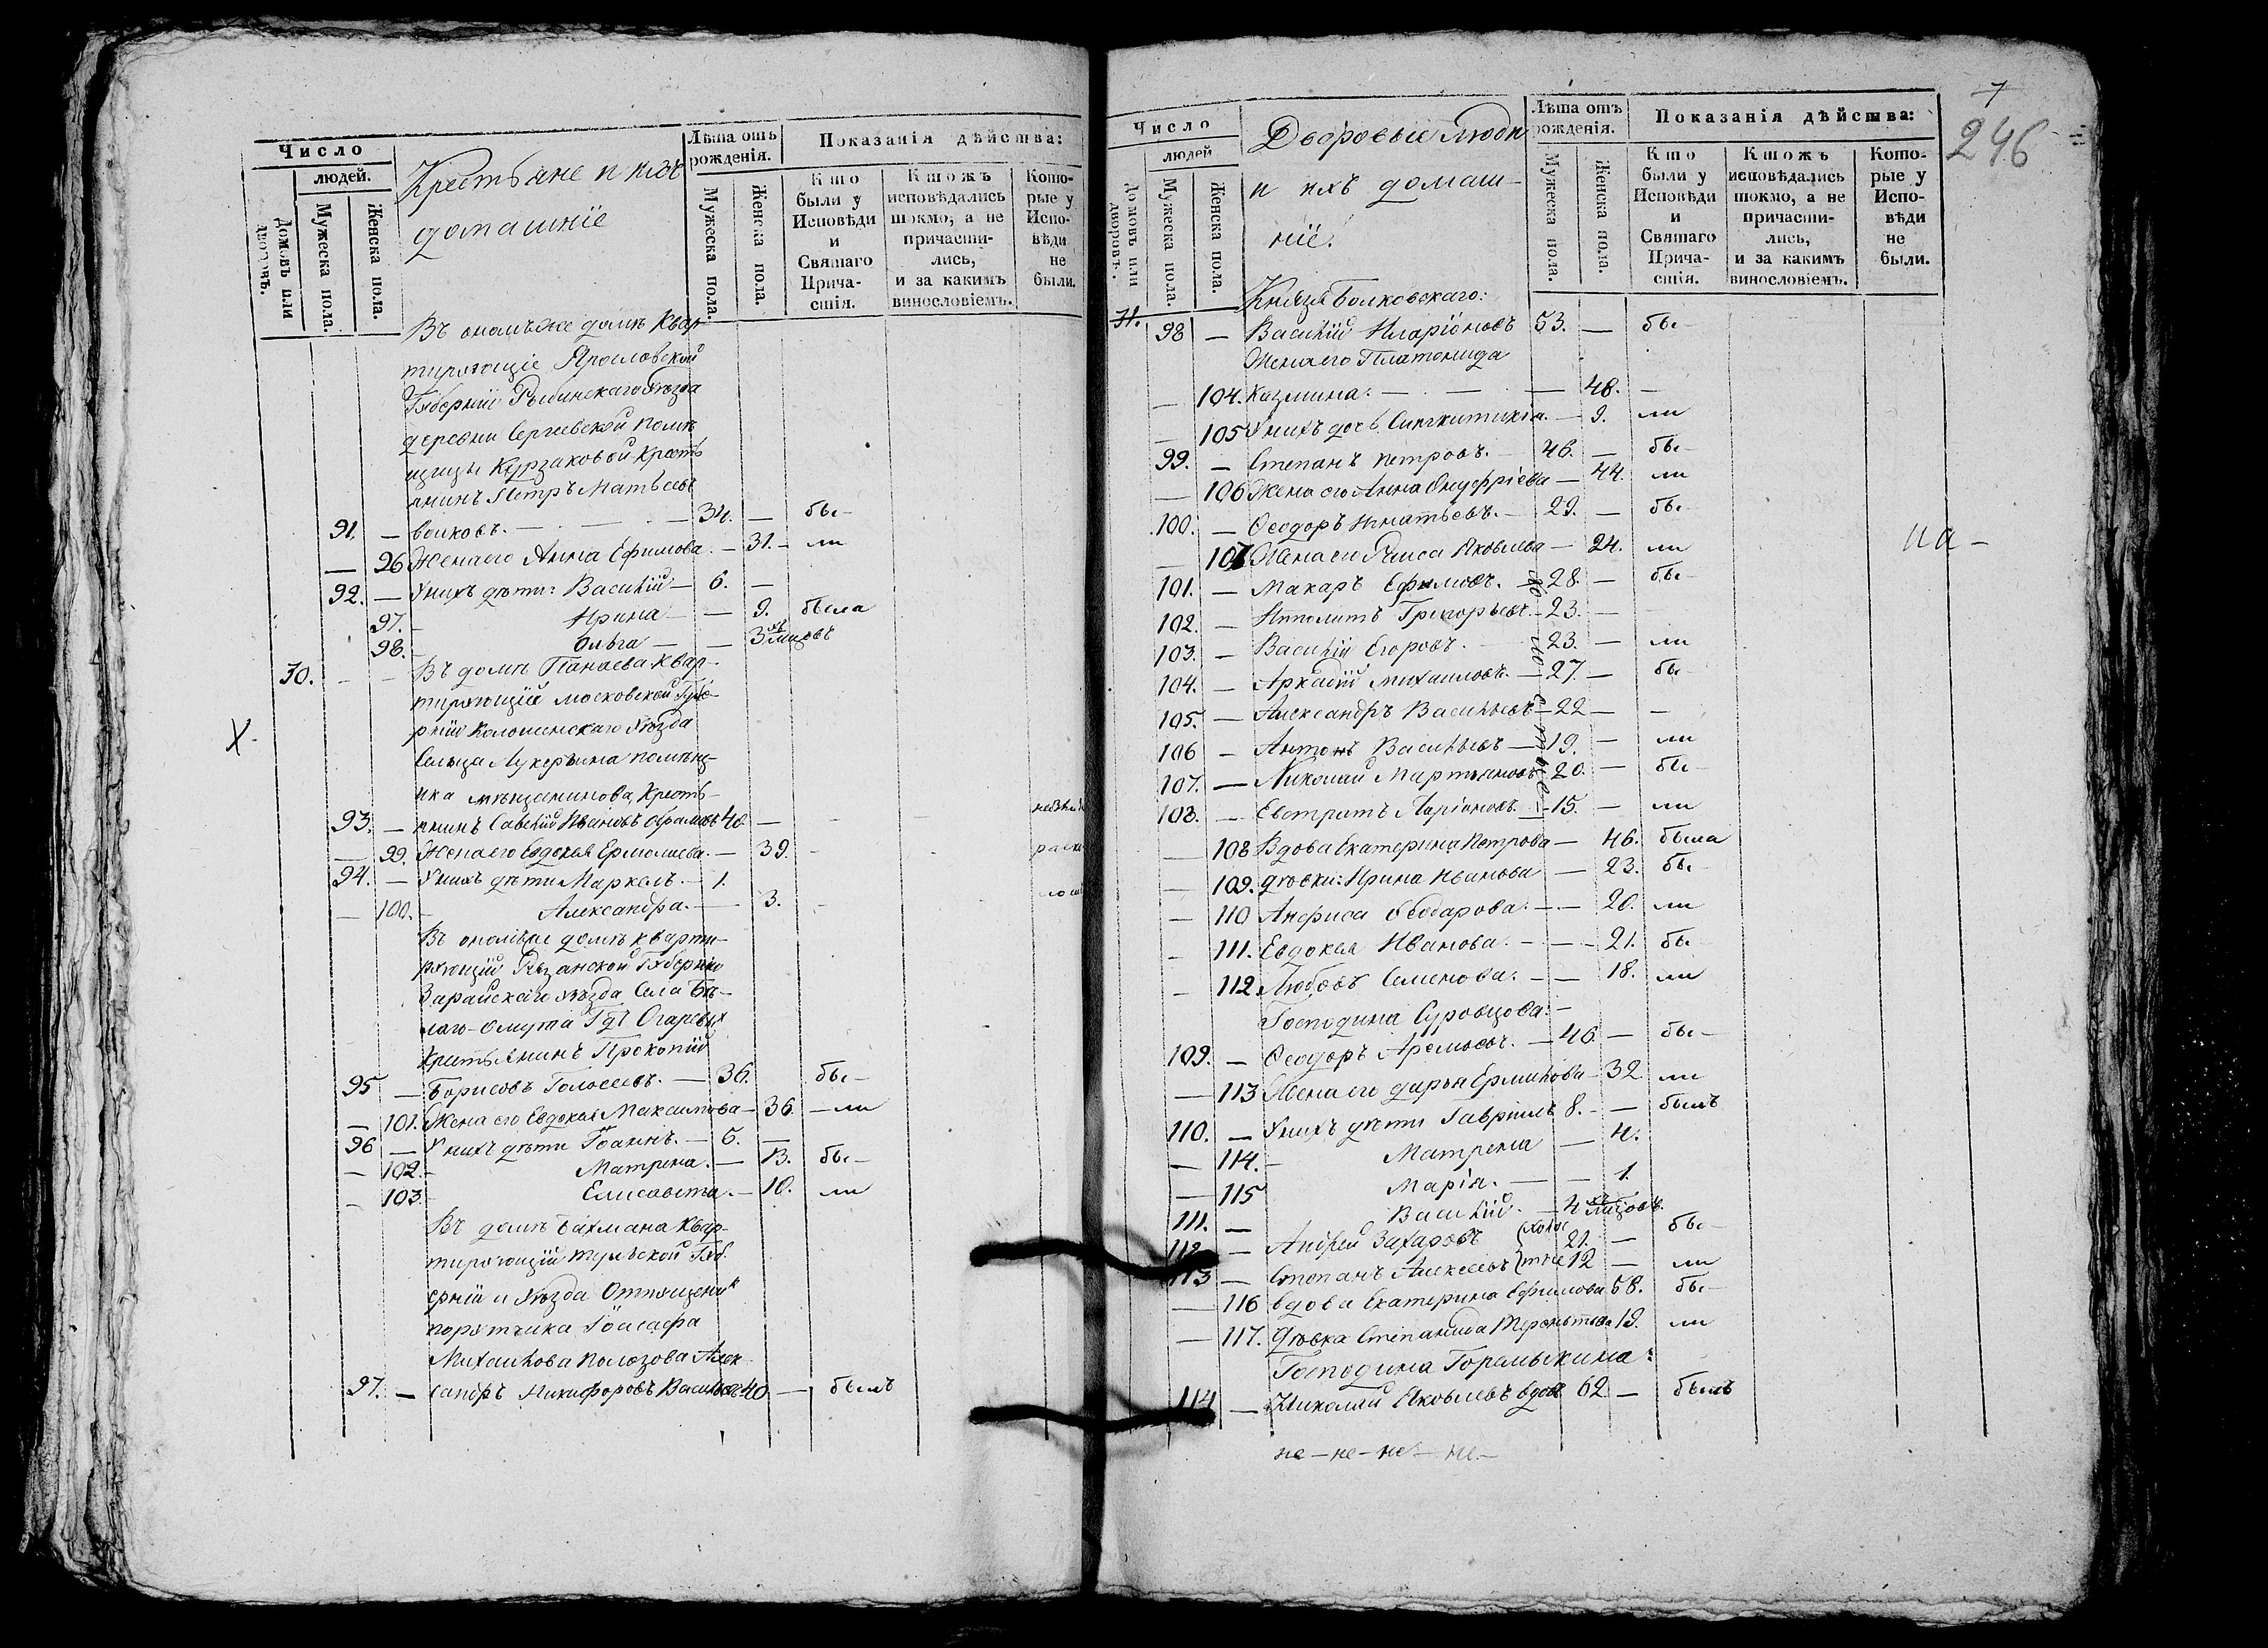 Число
людей.
Домовъ или дворовъ.
Мужеска пола.
Женска пола.
Крестьяне и ихъ
домашніе
Лѣта отъ рожденія.
Мужеска пола.
Женска пола.
Показанія дѣйства:
Кто были у Исповѣди и Святаго Прича-стія.
Ктожъ исповѣдались токмо, а не причасти-лись, и за какимъ винословіемъ.
Кото-рые у Испо-вѣди не были.
Въ ономъ же домѣ квар-
тирующіе Ярославской
Губерніи Рыбинскаго уѣзда
деревни Сергѣевской помѣ
щицы Курзаковой кресть
янинъ Петръ Матвѣевъ
91. — волковъ. — 34. — бы-
— 96 Жена его Анна Ефимова. — 31. — ли
92. — У нихъ дѣти: Василій — 6. —
97. — Ирина — — 9. была
98. — Ольга — — 3 хъ мцовъ
30. — — Въ домѣ Панаева квар-
тирующій московской Губе-
рніи Коломенскаго уѣзда
Сельца Лукерьина помѣщ-
ика мѣщанинова, кресть-
93. — янинъ Савелій Ивановъ Абрамовъ 40. —
— 99. Жена его Евдокія Ермолаева. — 39. — раско
94. — У нихъ дѣти Маркелъ. — 1.
— 100. — Александра. — 3. —
Въ ономъ же домѣ кварти-
рующій Рязанской Губерніи
Зарайскаго уѣзда Села Бѣ-
лаго-Омута Гдъ Огаревыхъ
Крестьянинъ Прокопій
95 — Борисовъ Голосеевъ. — 36. бы-
— 101. Жена его Евдокія Максимова — 36. — ли
96 — У нихъ дѣти Іоаннъ. — 6. —
— 102. — Матрена. — 13. бы-
— 103 — Елисавета. — 10. ли
Въ домѣ Бахмана квар-
тирующій тульской Губ
ерніи и уѣзда Отпущеникъ
порутчика Іоасафа
Михайлова Полозова Алек-
97. — сандръ Никифоровъ Васильевъ 40 — былъ
7
246
Число
людей
Домовъ или дворовъ.
Мужеска пола.
Женска пола.
Дворовые люди
и ихъ домаш-
ніе.
Лѣта отъ рожденія.
Мужеска пола.
Женска пола.
Показанія дѣйства:
Кто были у Исповѣди и Святаго Прича-стія.
Ктожъ исповѣдались токмо, а не причасти-лись, и за какимъ винословіемъ.
Кото-рые у Испо-вѣди не были.
Князя Волковскаго:
31. 98 — Василій Иларіоновъ 53. — бы-
Жена его Платонида
— 104. Казмина. — — 48. —
— 105 У нихъ дочь Синклитикія. — 9. ли
99. — Степанъ Петровъ. — 46. — бы-
— 106 Жена его Анна Онуфріева — 44. ли
100. — Ѳеодоръ Игнатьевъ. — 29. — бы-
— 107 Жена его Раиса Яковлева — 24. ли
101. — Макаръ Ефимовъ. — 28. — бы-
102. — Ипполитъ Григорьевъ. — 23. —
103. — Василій Егоровъ. — 23. — ли
104. — Аркадій Михаиловъ. — 27. — бы-
105. — Александръ Васильевъ — 22 — —
106 — Антонъ Васильевъ — 19. — ли
107. — Николай Мартьяновъ — 20. — бы-
108. — Евстратъ Ларіоновъ. — 15. — ли
холостые
— 108 Вдова Екатерина Петрова — 46. была
— 109. дѣвки: Ирина Иванова — 23. бы-
— 110 Анфиса Ѳеодорова. — — 20. ли
— 111. Евдокія Иванова. — — 21. бы-
— 112. Любовь Семенова. — — 18. ли
Господина Суровцова: —
109. — Ѳеодоръ Артемьевъ. — 46. — бы-
— 113 Жена его дарья Ермилова — 32 ли
110. — У нихъ дѣти Гавріилъ 8. — былъ
— 114. — Матрена — 4.
— 115 Марія. — — 1.
111. — Василій. — 4 хъ мцовъ.
112 — Андрей Захаровъ (холос 21. — бы-
113 — Степанъ Алексеевъ (тые 12 — ли
— 116 вдова Екатерина Ефимова 58. бы-
— 117. Дѣвка Степанида Терентьева 19. ли
Господина Горемыкина:
114 — Николай Яковлевъ вдовъ 62 — былъ
не — не — не — не —
на —